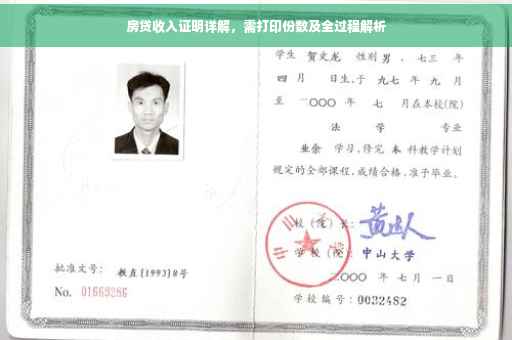 房贷收入证明详解，需打印份数及全过程解析
学生 贺文龙 性别 男，七三 年
四 月 日生，于 九七 年 九 月
至 二〇〇〇 年 七 月在本校(院)
法 学 专业
业余 学习，修完 本 科教学计划
规定的全部课程，成绩合格，准予毕业。
校(院)长：
学校(院)：中山大学
二〇〇〇 年 七 月 一 日
学校编号：0032482
批准文号：教直[1993]8号
No. 01669286